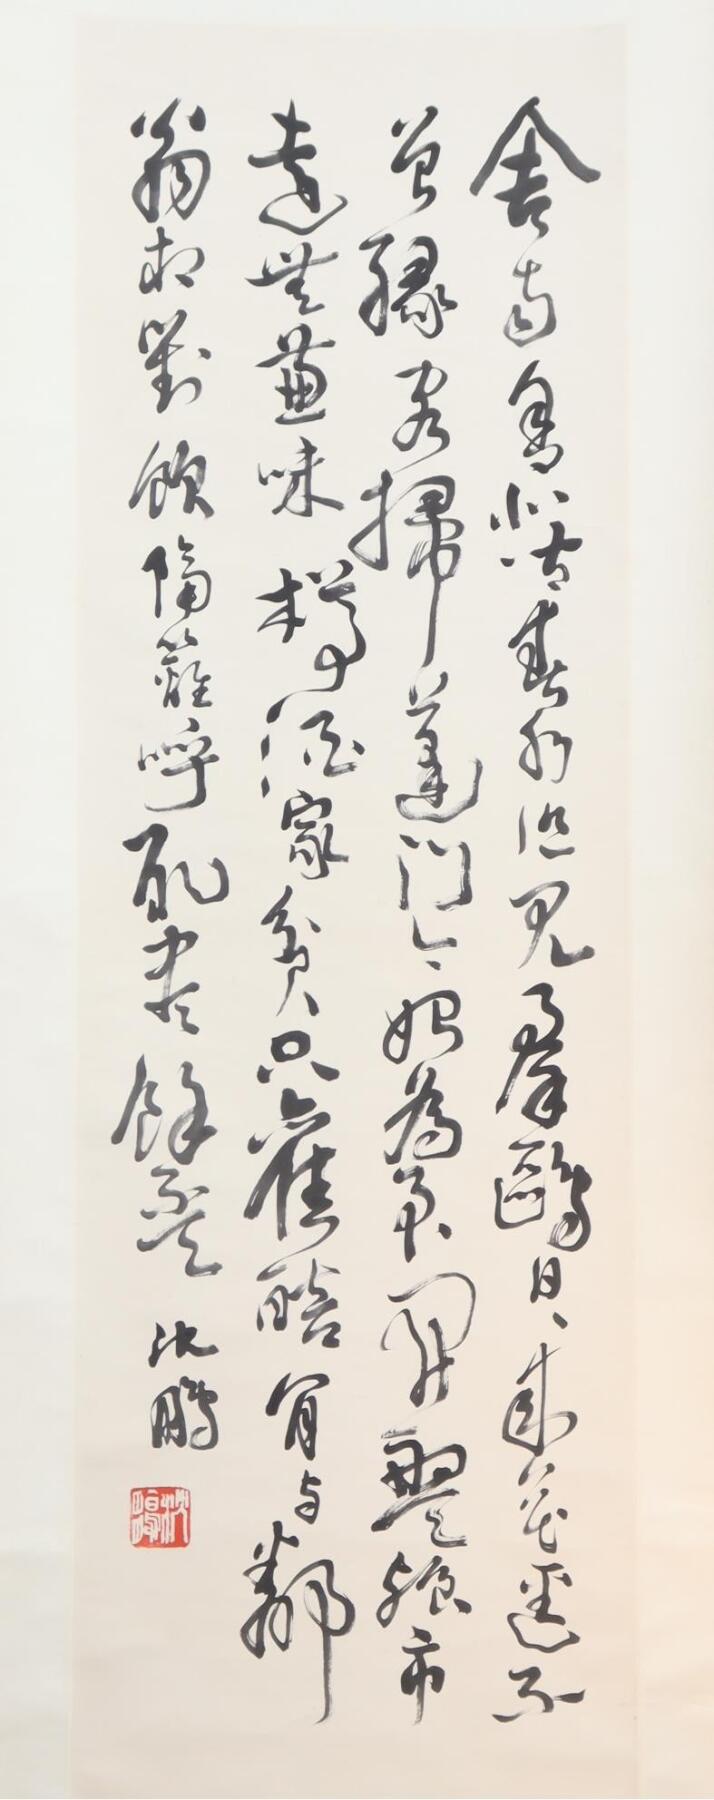 舍南舍北皆春水但見羣鷗日々來花徑不
曾緣客掃蓬門今始為君開盤飧市
遠無兼味樽酒家貧只舊醅肯与鄰
翁相對飲隔籬呼取盡餘盃 沈鵬